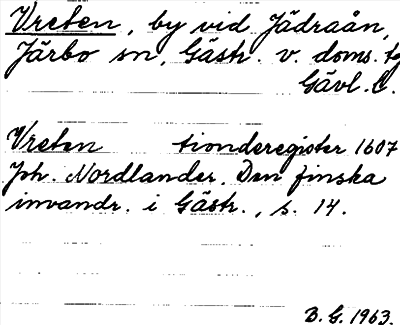 Vreten, by vid Jädraån,
Järbo sn, Gästr. v. doms. tg
Gävl. l.
Vreten tionderegister 1607
Joh. Nordlander. Den finska
invandr. i Gästr., s. 14.
B. G. 1963.